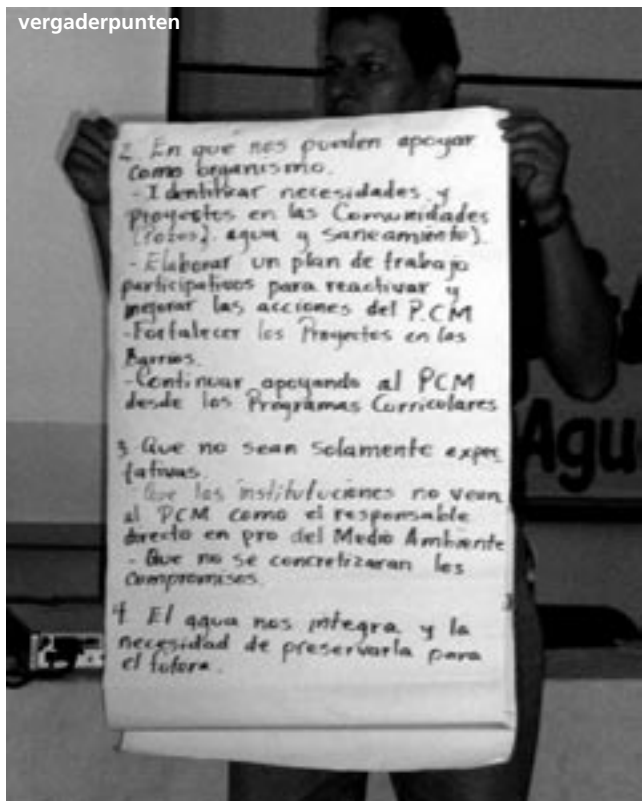 vergaderpunten
2 En qué nos pueden apoyar
como organismo.
- Identificar necesidades y
proyectos en las Comunidades
(Pozos). agua y saneamiento).
- Elaborar un plan de trabajo
participativos para reactivar y
mejorar las acciones del P.CM
- Fortalecer los Proyectos en los
Barrios.
- Continuar apoyando al PCM
desde los Programas Curriculares
3 Que no sean solamente expec
tativas.
Que las instituciones no vean
al PCM como el responsable
directo en pro del Medio Ambiente
- Que no se concretizaran los
compromisos.
4 El agua nos integra y la
necesidad de preservarla para
el futuro.
Agu